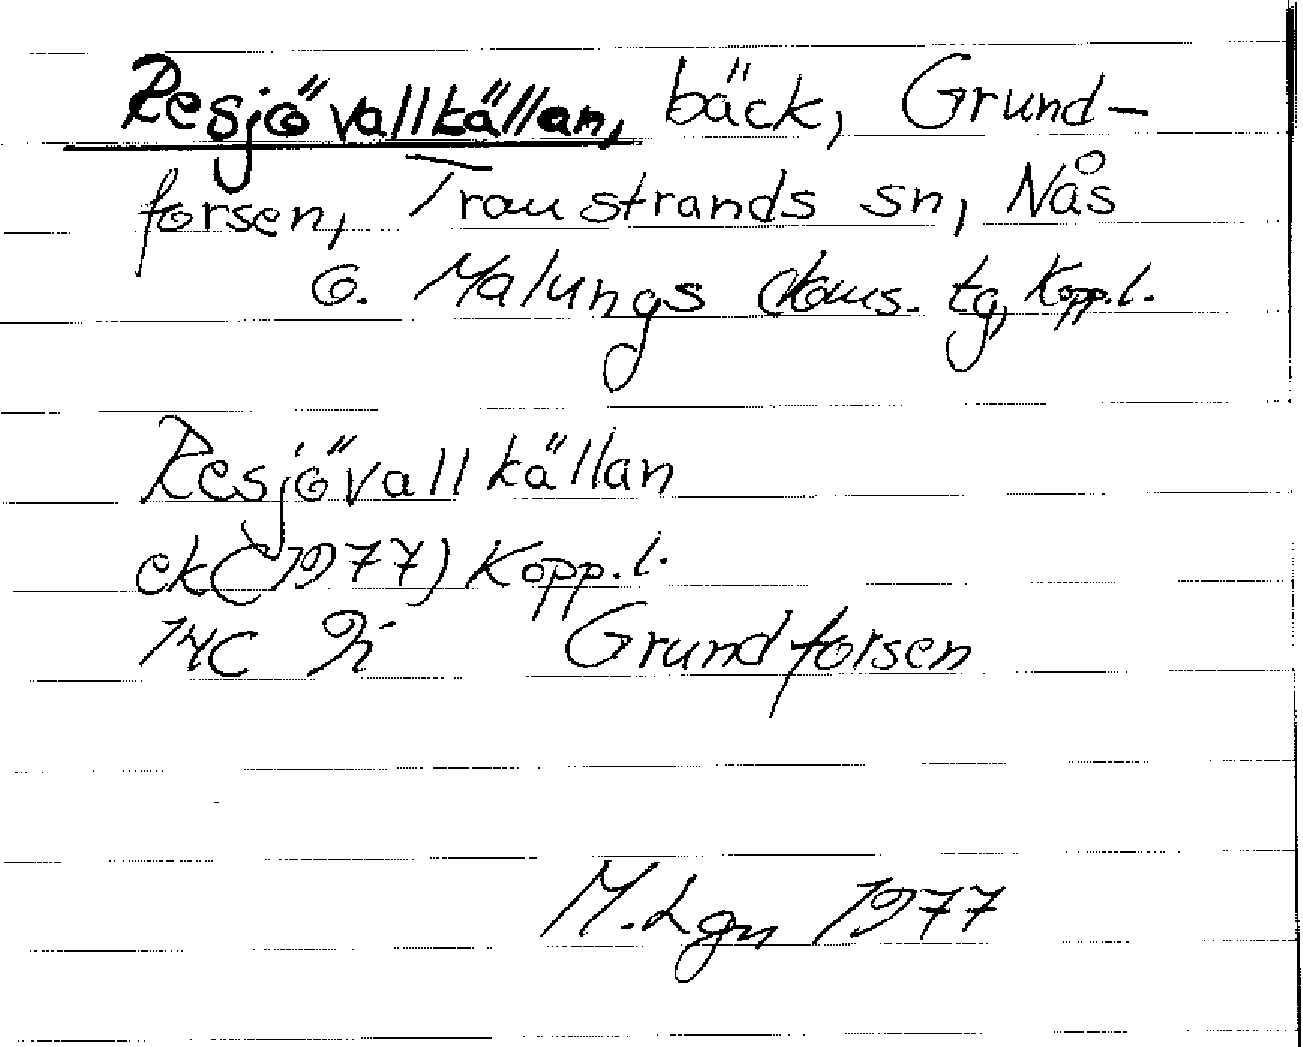 Resjövallkällan, bäck, Grund-
forsen, Transtrands sn, Nås
o. Malungs doms. tg, Kopp.l.
Resjövallkällan
ek (1977) Kopp.l.
14C
Grundforsen
M.Lgn 1977